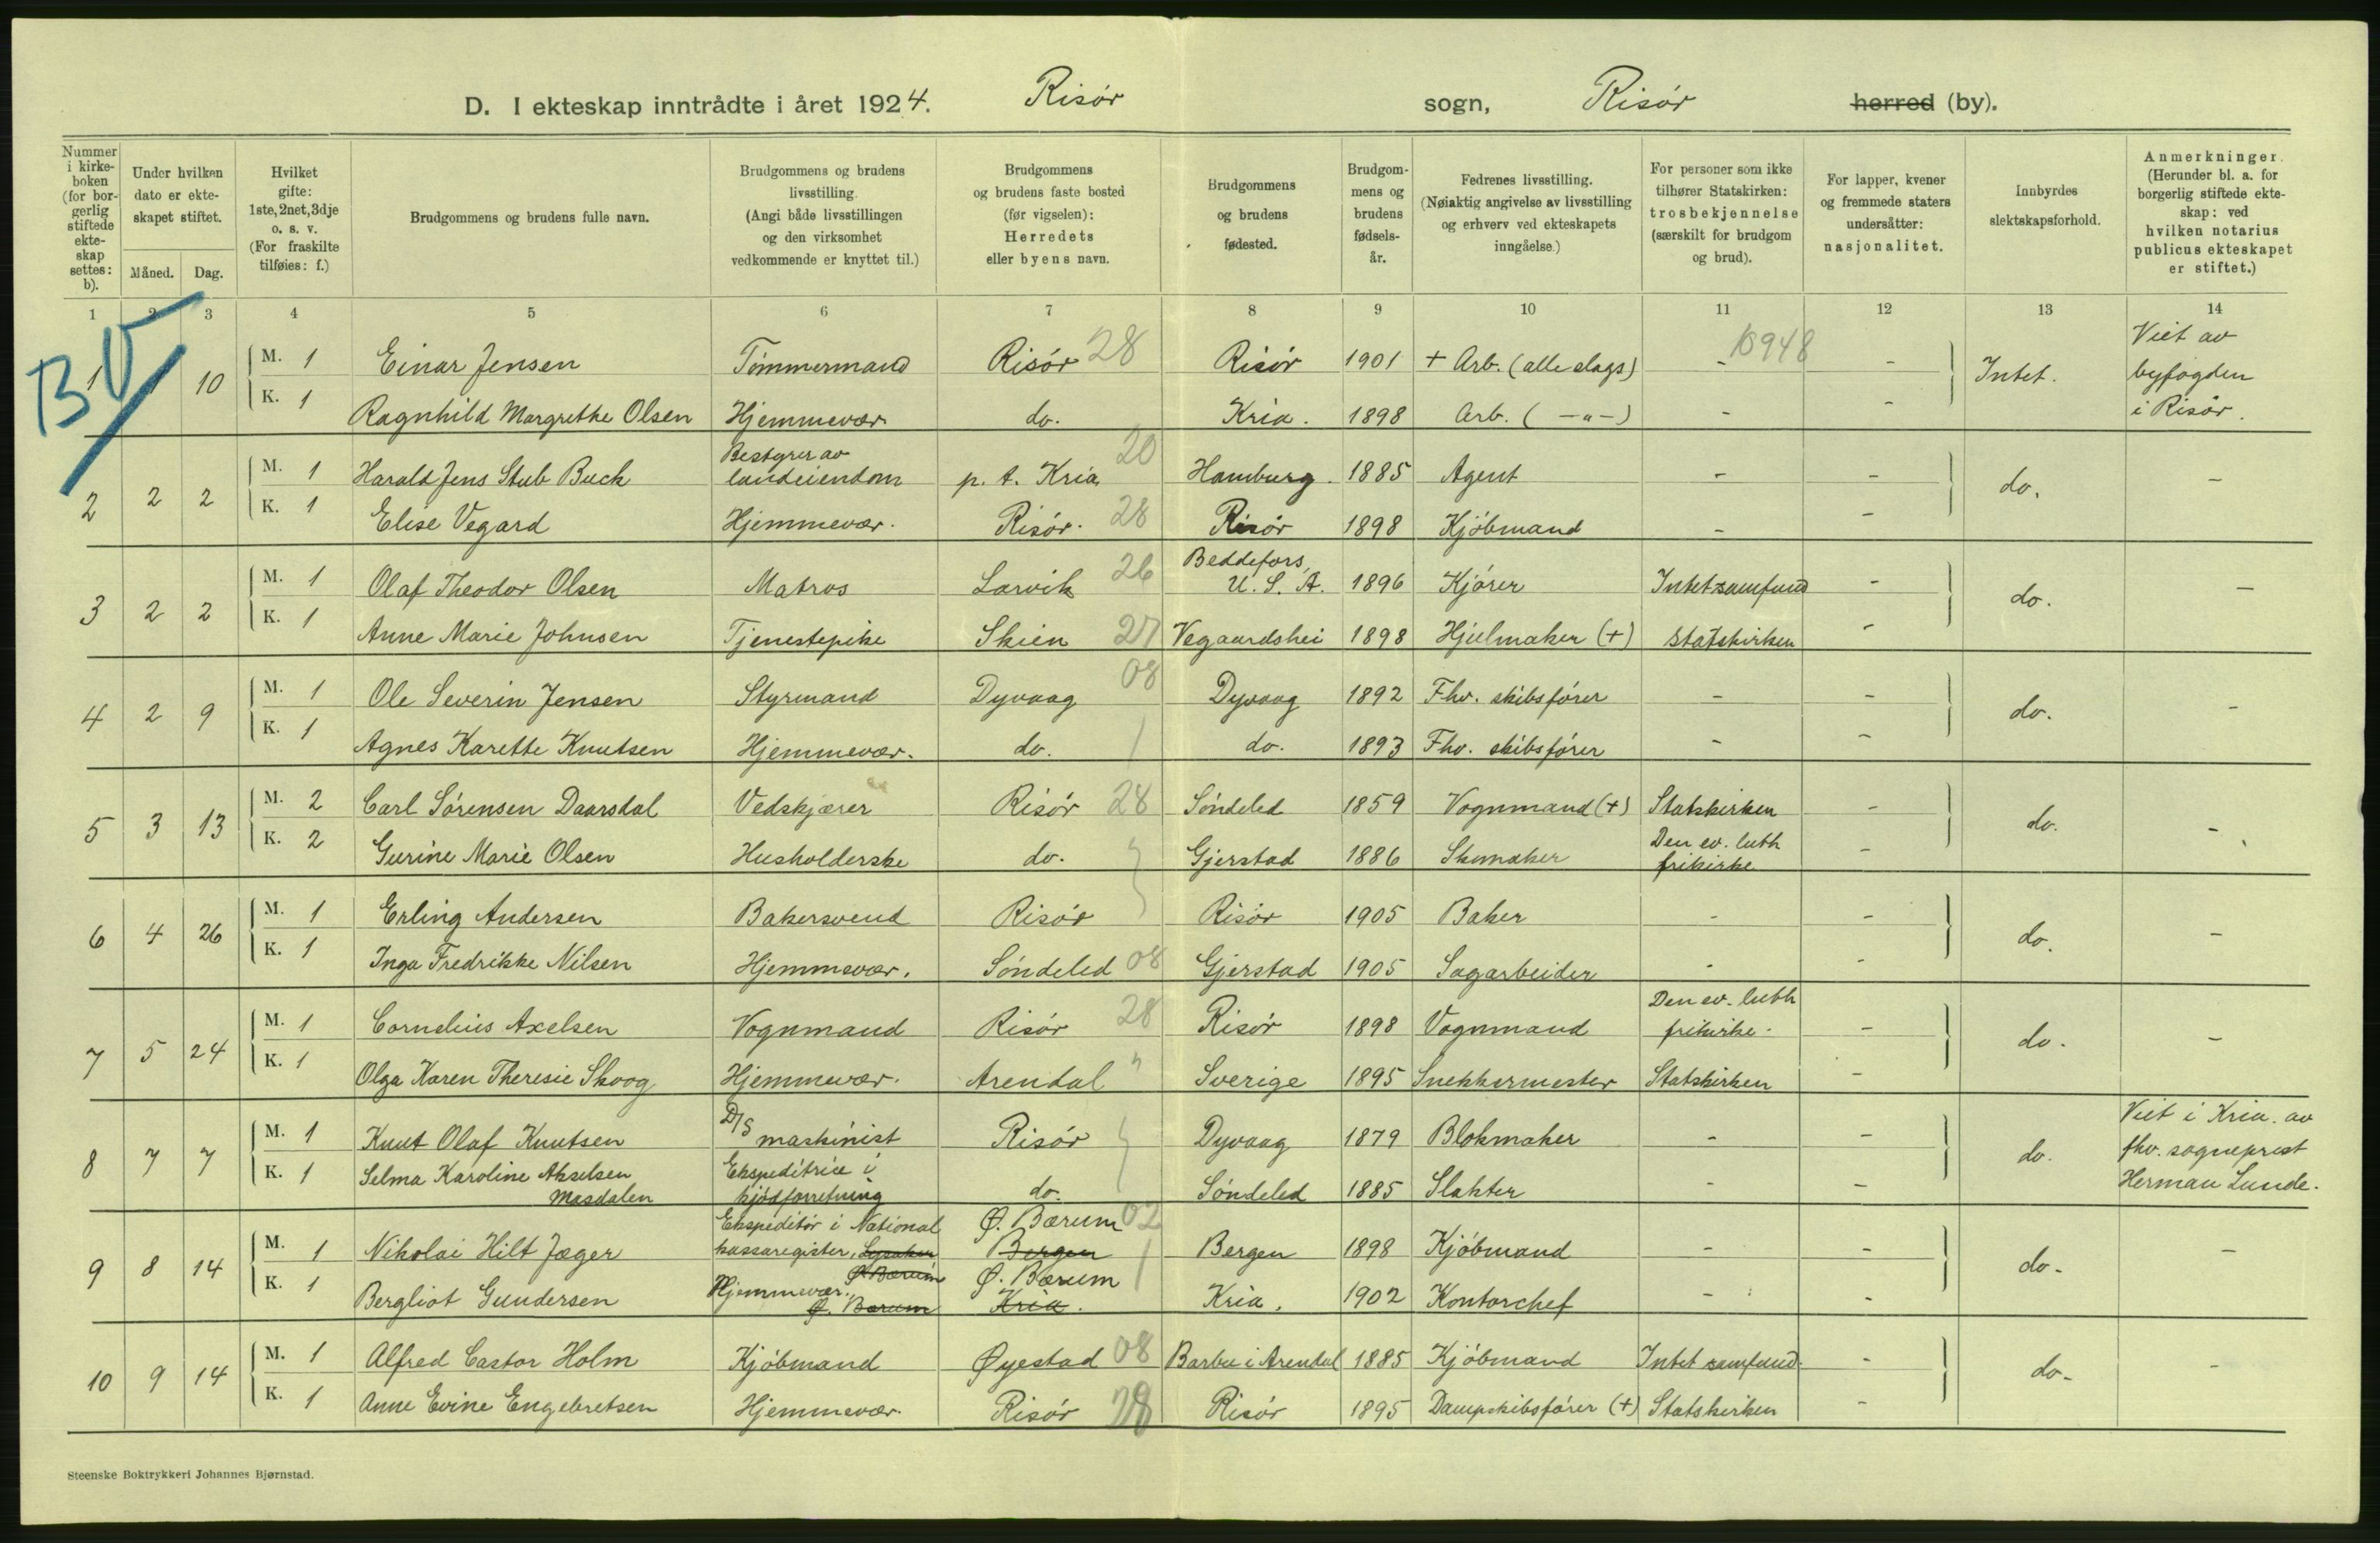 D. I ekteskap inntrådte i året 1924. Risør sogn, Risør herred (by).
Nummer i kirkeboken (for borgerlig stiftede ekteskap settes: b).
Under hvilken dato er ekteskapet stiftet.
Måned. Dag.
Hvilket gifte: 1ste, 2net, 3dje o. s. v. (For fraskilte tilføies: f.)
Brudgommens og brudens fulle navn.
Brudgommens og brudens livsstilling. (Angi både livsstillingen og den virksomhet vedkommende er knyttet til.)
Brudgommens og brudens faste bosted (før vigselen): Herredets eller byens navn.
Brudgommens og brudens fødested.
Brudgommens og brudens fødselsår.
Fedrenes livsstilling. (Nøiaktig angivelse av livsstilling og erhverv ved ekteskapets inngåelse.)
For personer som ikke tilhører Statskirken: trosbekjennelse (særskilt for brudgom og brud).
For lapper, kvener og fremmede staters undersåtter: nasjonalitet.
Innbyrdes slektskapsforhold.
Anmerkninger. (Herunder bl. a. for borgerlig stiftede ekteskap: ved hvilken notarius publicus ekteskapet er stiftet.)
1 2 3 4 5 6 7 8 9 10 11 12 13 14
B
1 1 10 M. 1 Einar Jensen Tømmermand Risør 28 Risør 1901 + Arb. (alle slags) - 10948 - Intet. Viet av byfogden i Risør.
K. 1 Ragnhild Margrethe Olsen Hjemmevær. do. Kria. 1898 Arb. ( -"-) - -
2 2 2 M. 1 Harald Jens Stub Buck Bestyrer av landeiendom p. t. Kria 20 Hamburg. 1885 Agent - - do. -
K. 1 Elise Vegard Hjemmevær. Risør. 28 Risør 1898 Kjøbmand - -
3 2 2 M. 1 Olaf Theodor Olsen Matros Larvik 26 Beddefors, U. S. A. 1896 Kjører Intet samfund - do. -
K. 1 Anne Marie Johnsen Tjenestepike Skien 27 Vegaardshei 1898 Hjulmaker (+) Statskirken -
4 2 9 M. 1 Ole Severin Jensen Styrmand Dyvaag 08 Dyvaag 1892 Fhv. skibsfører - - do. -
K. 1 Agnes Karette Knutsen Hjemmevær. do. do. 1893 Fhv. skibsfører - -
5 3 13 M. 2 Carl Sørensen Daarsdal Vedskjærer Risør 28 Søndeled 1859 Vognmand (+) Statskirken - do. -
K. 2 Gurine Marie Olsen Husholderske do. Gjerstad 1886 Skomaker Den ev. luth frikirke -
6 4 26 M. 1 Erling Andersen Bakersvend Risør Risør 1905 Baker - - do. -
K. 1 Inga Fredrikke Nilsen Hjemmevær. Søndeled 08 Gjerstad 1905 Sagarbeider - -
7 5 24 M. 1 Cornelius Axelsen Vognmand Risør 28 Risør 1898 Vognmand Den ev. luth frikirke - - do. -
K. 1 Olga Karen Theresie Skoog Hjemmevær. Arendal " Sverige 1895 Snekkermester Statskirken -
8 7 7 M. 1 Knut Olaf Knutsen D/S maskinist Risør Dyvaag 1879 Blokmaker - - do. Viet i Kria. av fhv. sogneprest Herman Lunde.
K. 1 Selma Karoline Akselsen Masdalen Ekspeditrice i kjødforretning do. Søndeled 1885 Slakter - -
9 8 14 M. 1 Nikolai Hilt Jæger Ekspeditør i National kassaregister, Lysaker Ø. Bærum Ø. Bærum 02 Bergen Bergen 1898 Kjøbmand - - do. -
K. 1 Bergliot Gundersen Hjemmevær. Ø. Bærum Ø. Bærum Kria. Kria. 1902 Kontorchef - -
10 9 14 M. 1 Alfred Castor Holm Kjøbmand Øyestad 08 Barbu i Arendal 1885 Kjøbmand Intet samfund. - do. -
K. 1 Anne Evine Engebretsen Hjemmevær. Risør 28 Risør 1895 Dampskibsfører (+) Statskirken -
Steenske Boktrykkeri Johannes Bjørnstad.